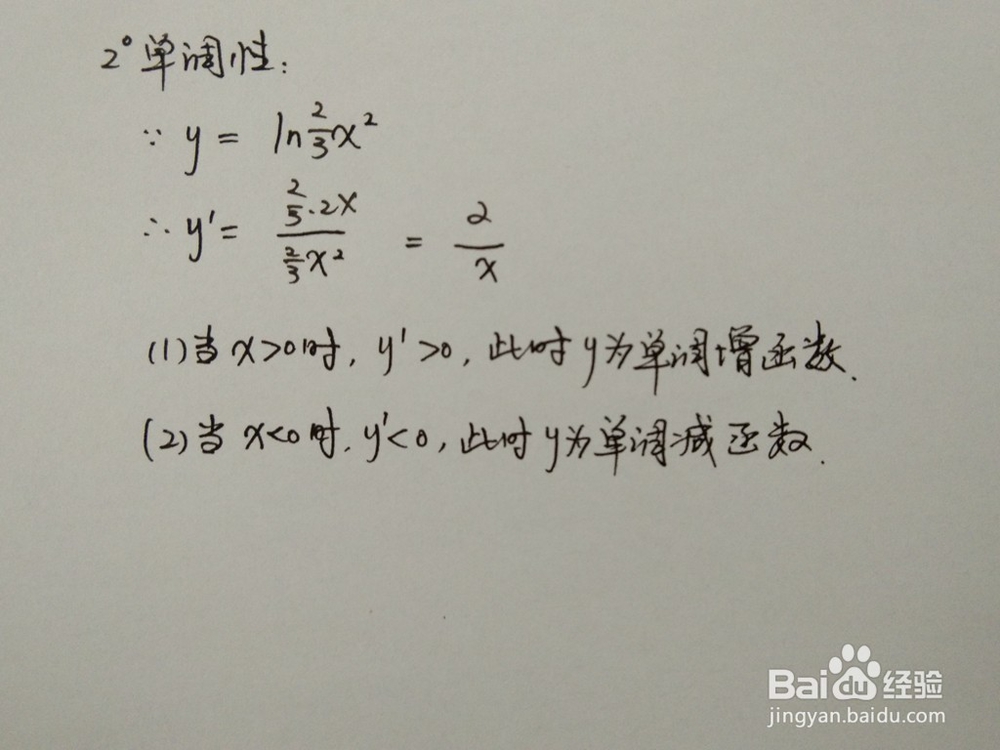 2° 单调性:
∵ y = ln 2/3 x²
∴ y' = (2/5 · 2x) / (2/3 x²) = 2/x
(1) 当 x>0时, y'>0, 此时 y为单调增函数.
(2) 当 x<0时, y'<0, 此时 y为单调减函数.
Baidu 经验
jingyan.baidu.com